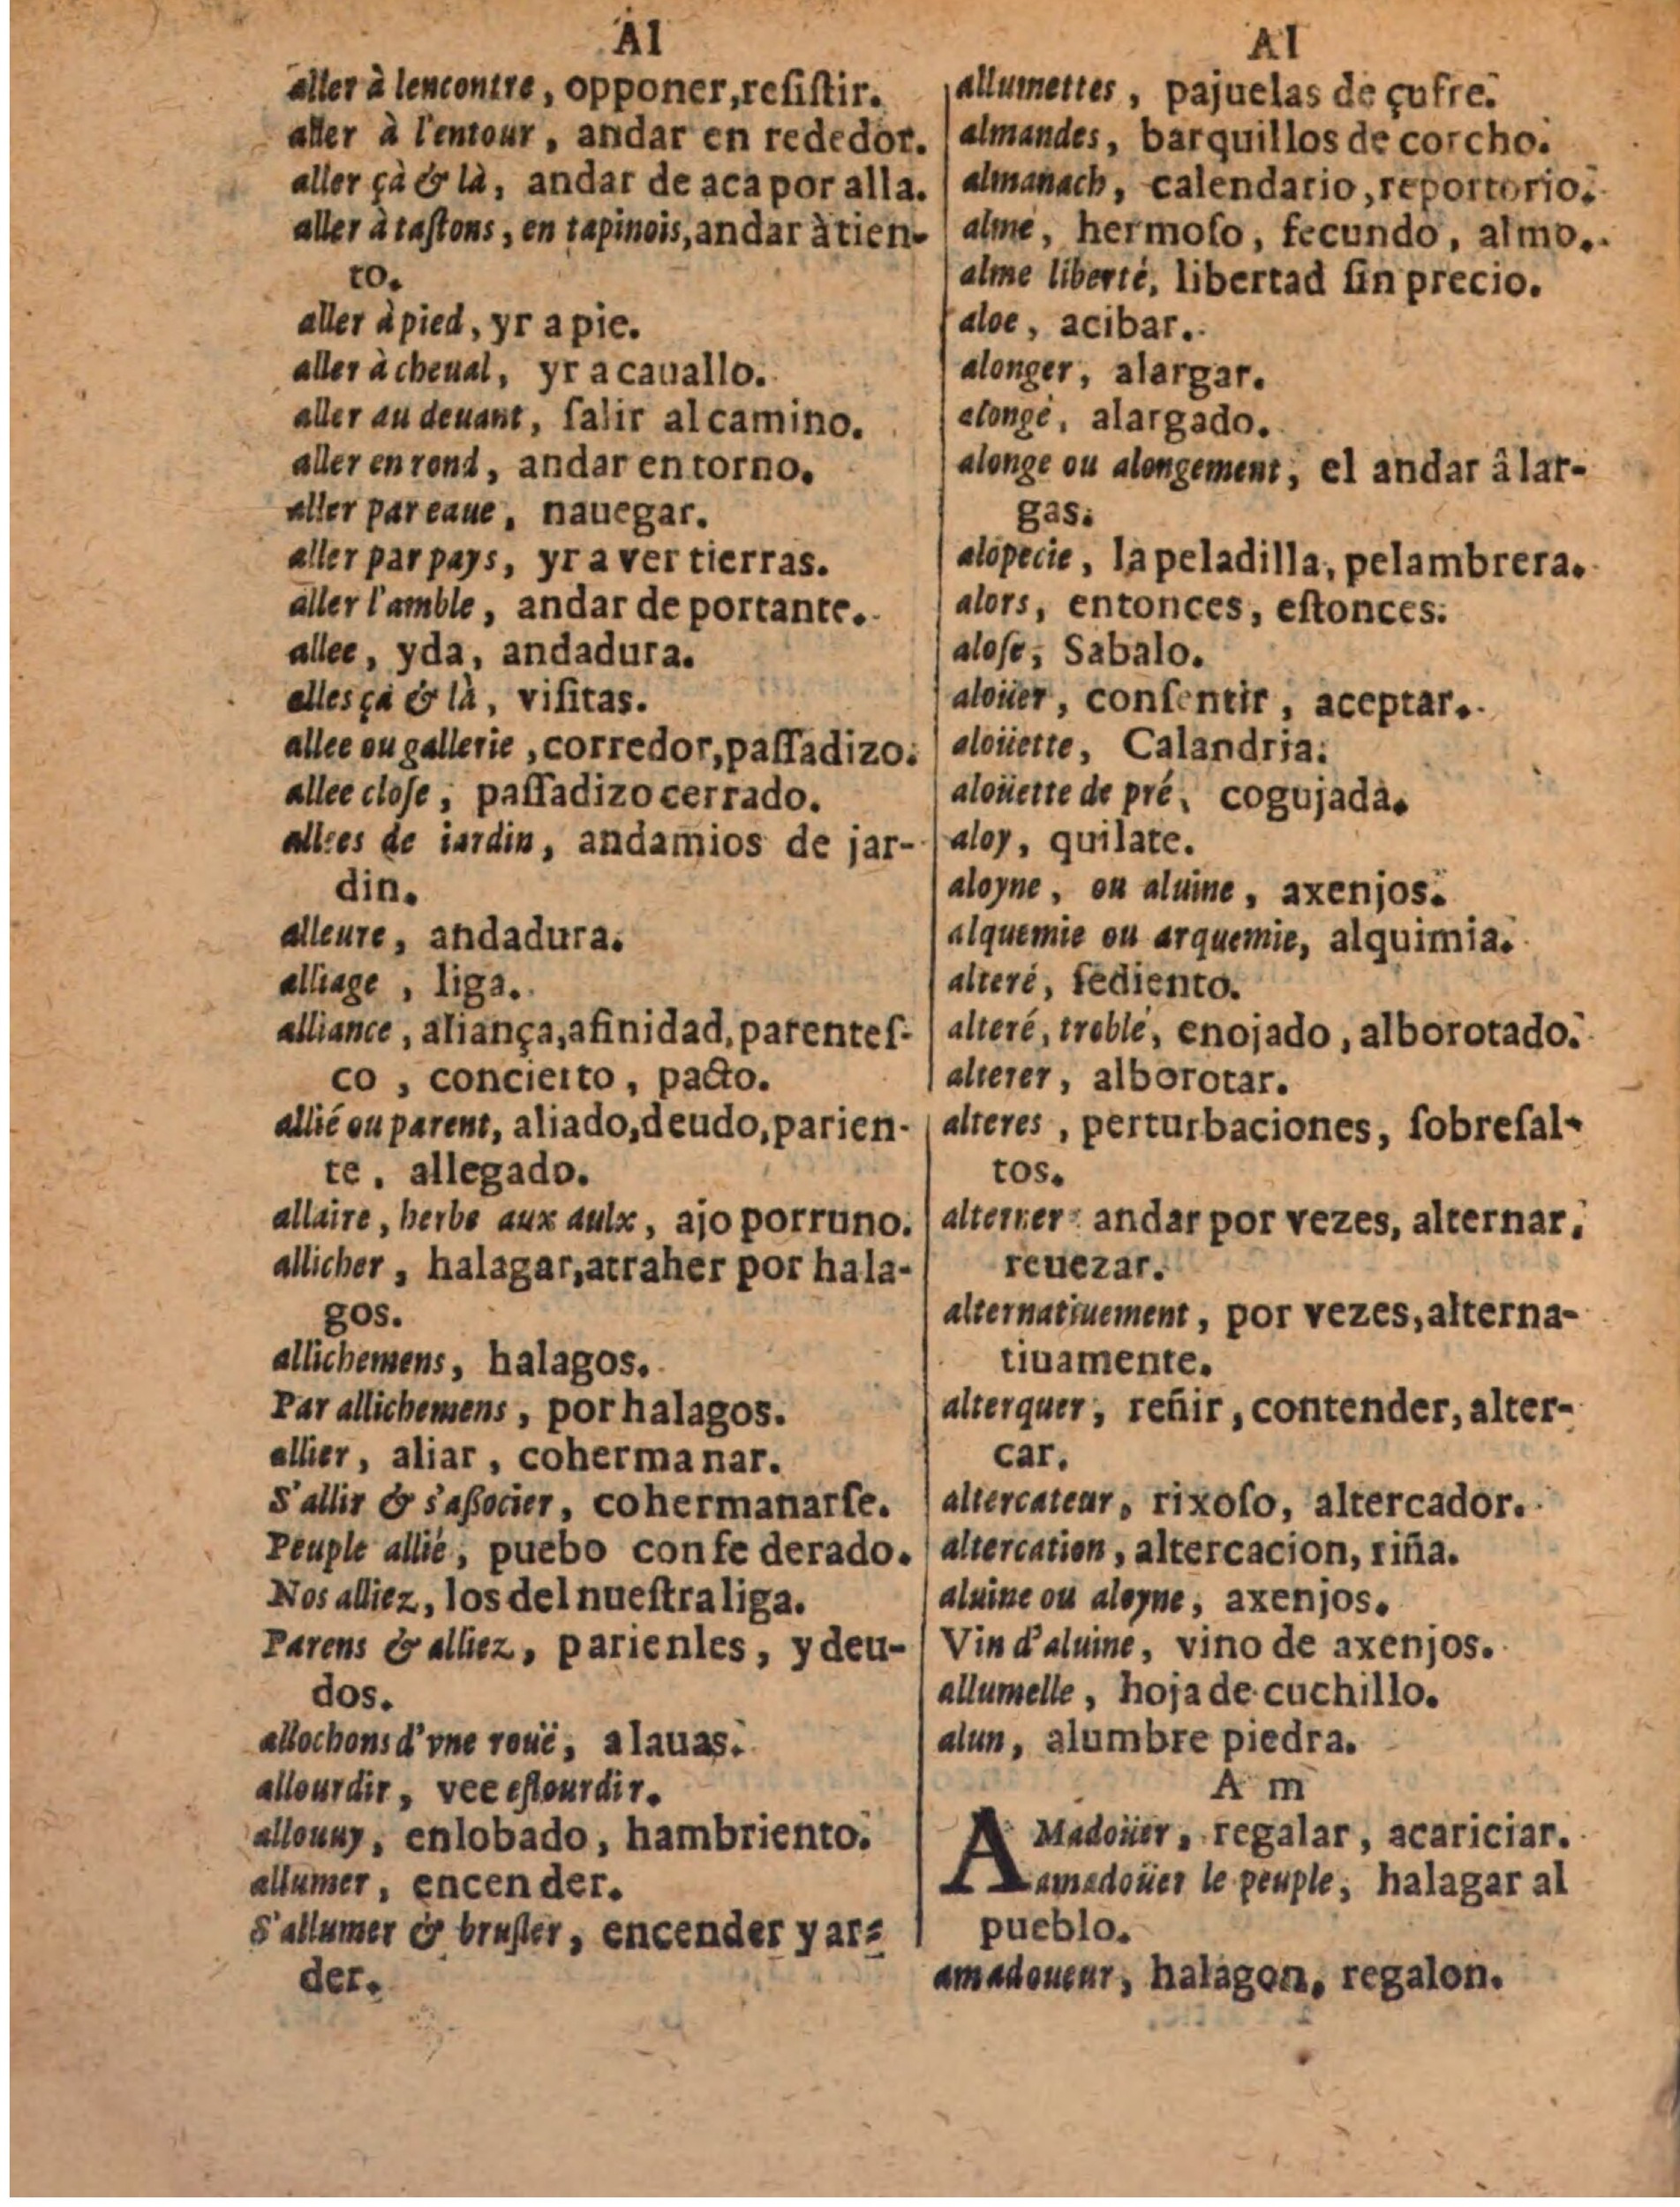 Al
aller à lencontre, opponer, resiſtir.
aller à l'entour, andar en rededor.
aller çà & là, andar de aca por alla.
aller à taſtons, en tapinois, andar à tien-
to.
aller à pied, yr a pie.
aller à cheual, yr a cauallo.
aller au deuant, ſalir al camino.
aller en rond, andar en torno.
aller par eaue, nauegar.
aller par pays, yr a ver tierras.
aller l'amble, andar de portante.
allee, yda, andadura.
alles çà & là, viſitas.
allee ou gallerie, corredor, paſſadizo.
allee cloſe, paſſadizo cerrado.
allees de iardin, andamios de jar-
din.
alleure, andadura.
alliage, liga.
alliance, aliança, afinidad, parenteſ-
co, concierto, pacto.
allié ou parent, aliado, deudo, parien-
te, allegado.
allaire, herbe aux aulx, ajo porruno.
allicher, halagar, atraher por hala-
gos.
allichemens, halagos.
Par allichemens, por halagos.
allier, aliar, cohermanar.
S'allir & s'aßocier, cohermanarſe.
Peuple allié, puebo confe derado.
Nos alliez, los del nueſtra liga.
Parens & alliez, parienles, y deu-
dos.
allochons d'vne rouë, alauas.
allourdir, vee eſtourdir.
allouuy, enlobado, hambriento.
allumer, encender.
S'allumer & bruſler, encender y ar-
der.
Al
allumettes, pajuelas de çufre.
almandes, barquillos de corcho.
almanach, calendario, reportorio.
alme, hermoſo, fecundo, almo.
alme liberté, libertad ſin precio.
aloe, acibar.
alonger, alargar.
alongé, alargado.
alonge ou alongement, el andar â lar-
gas.
alopecie, la peladilla, pelambrera.
alors, entonces, eſtonces.
aloſe, Sabalo.
aloüer, conſentir, aceptar.
aloüette, Calandria.
aloüette de pré, cogujada.
aloy, quilate.
aloyne, ou aluine, axenjos.
alquemie ou arquemie, alquimia.
alteré, ſediento.
alteré, troblé, enojado, alborotado.
alterer, alborotar.
alteres, perturbaciones, ſobreſal-
tos.
alterner andar por vezes, alternar,
reuezar.
alternatiuement, por vezes, alterna-
tiuamente.
alterquer, reñir, contender, alter-
car.
altercateur, rixoſo, altercador.
altercation, altercacion, riña.
aluine ou aloyne, axenjos.
Vin d'aluine, vino de axenjos.
allumelle, hoja de cuchillo.
alun, alumbre piedra.
A m
AMadoüer, regalar, acariciar.
amadoüer le peuple, halagar al
pueblo.
amadoueur, halagon, regalon.